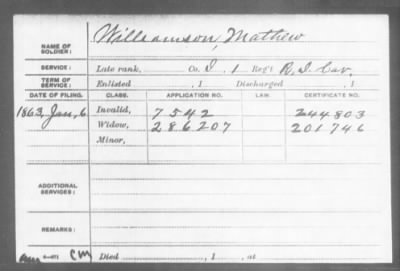 NAME OF SOLDIER: Williamson, Mathew
SERVICE: Late rank, Co. I, 1 Reg't R. I. Cav.
TERM OF SERVICE: Enlisted , 1 Discharged , 1
DATE OF FILING. CLASS. APPLICATION NO. LAW. CERTIFICATE NO.
1863, Jan, 6 Invalid, 7542 244803
Widow, 286207 201746
Minor,
ADDITIONAL SERVICES:
REMARKS:
cm Died , 1 , at